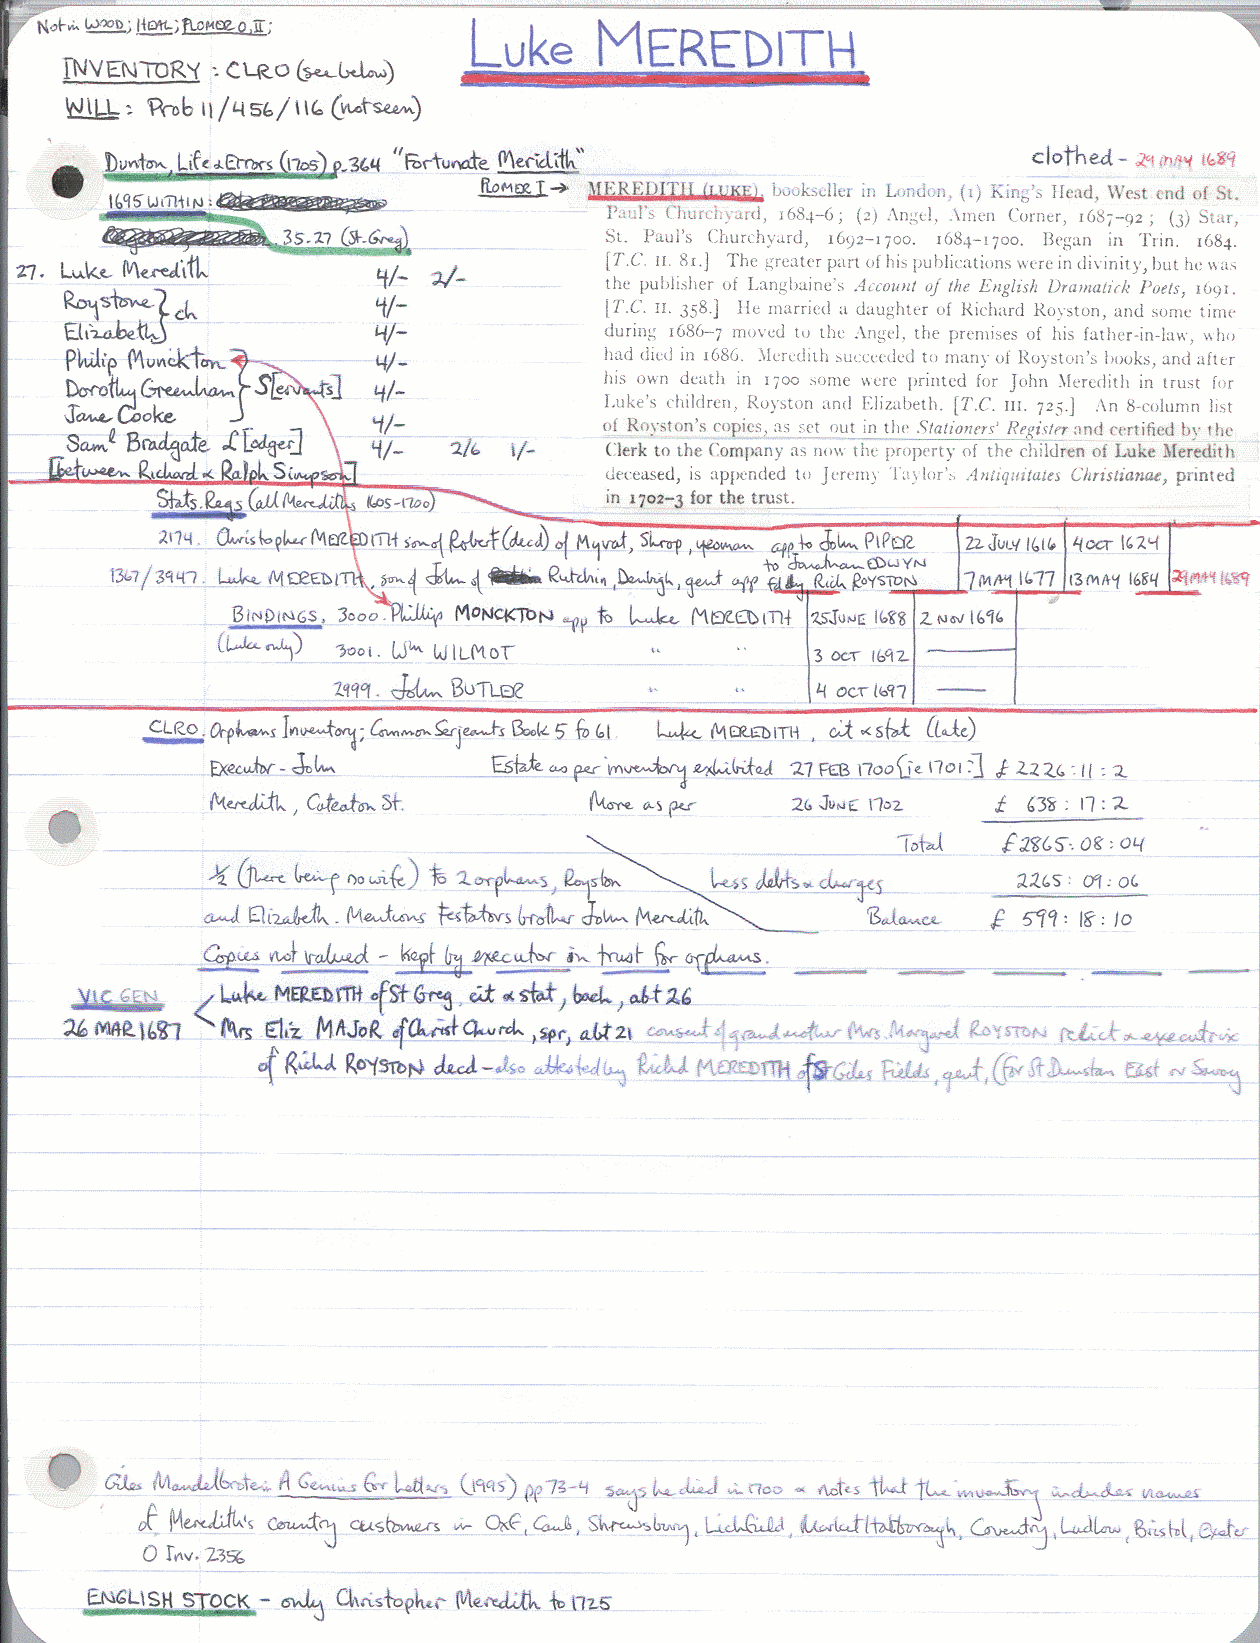 Not in WOOD; HEAL; PLOMER O, II;
Luke MEREDITH
INVENTORY : CLRO (see below)
WILL : Prob 11/456/116 (not seen)
Dunton, Life & Errors (1705) p.364 "Fortunate Meridith"
clothed - 29 MAY 1689
1695 WITHIN :
35.27 (St.Greg)
PLOMER I →
MEREDITH (LUKE), bookseller in London, (1) King's Head, West end of St.
Paul's Churchyard, 1684–6; (2) Angel, Amen Corner, 1687–92; (3) Star,
St. Paul's Churchyard, 1692–1700. 1684–1700. Began in Trin. 1684.
[T.C. II. 81.] The greater part of his publications were in divinity, but he was
the publisher of Langbaine's Account of the English Dramatick Poets, 1691.
[T.C. II. 358.] He married a daughter of Richard Royston, and some time
during 1686–7 moved to the Angel, the premises of his father-in-law, who
had died in 1686. Meredith succeeded to many of Royston's books, and after
his own death in 1700 some were printed for John Meredith in trust for
Luke's children, Royston and Elizabeth. [T.C. III. 725.] An 8-column list
of Royston's copies, as set out in the Stationers' Register and certified by the
Clerk to the Company as now the property of the children of Luke Meredith
deceased, is appended to Jeremy Taylor's Antiquitates Christianae, printed
in 1702–3 for the trust.
27. Luke Meredith 4/- 2/-
Roystone } ch 4/-
Elizabeth 4/-
Philip Munckton 4/-
Dorothy Greenham } S[ervants] 4/-
Jane Cooke 4/-
Saml Bradgate L[odger] 4/- 2/6 1/-
[between Richard & Ralph Simpson]
Stats. Regs (all Merediths 1605-1700)
2174. Christopher MEREDITH son of Robert (decd) of Myvat, Shrop, yeoman app to John PIPER 22 JULY 1616 4 OCT 1624
to Jonathan EDWYN
1367/3947. Luke MEREDITH, son of John of Rutchin, Denbigh, gent app Rich ROYSTON 7 MAY 1677 13 MAY 1684 29 MAY 1689
BINDINGS, 3000. Phillip MONCKTON app to Luke MEREDITH 25 JUNE 1688 2 NOV 1696
(Luke only) 3001. Wm WILMOT " " 3 OCT 1692 —
2999. John BUTLER " " 4 OCT 1697 —
CLRO. Orphans Inventory; Common Serjeants Book 5 fo 61. Luke MEREDITH, cit & stat (late)
Executor - John Estate as per inventory exhibited 27 FEB 1700 [ie 1701?] £2226:11:2
Meredith, Cateaton St. More as per 26 JUNE 1702 £ 638:17:2
Total £2865:08:04
½ (there being no wife) to 2 orphans, Royston Less debts & charges 2265:09:06
and Elizabeth. Mentions testators brother John Meredith Balance £ 599:18:10
Copies not valued - kept by executor in trust for orphans.
VIC GEN Luke MEREDITH of St Greg, cit & stat, bach, abt 26
26 MAR 1687 Mrs Eliz MAJOR of Christ Church, spr, abt 21 consent of grandmother Mrs. Margaret ROYSTON relict & executrix
of Richd ROYSTON decd - also attested by Richd MEREDITH of St Giles Fields, gent, (for St Dunstan East or Savoy
Giles Mandelbrote in A Genius for Letters (1995) pp 73-4 says he died in 1700 & notes that the inventory includes names
of Meredith's country customers in Oxf, Camb, Shrewsbury, Lichfield, Market Harborough, Coventry, Ludlow, Bristol, Exeter
O Inv. 2356
ENGLISH STOCK - only Christopher Meredith to 1725